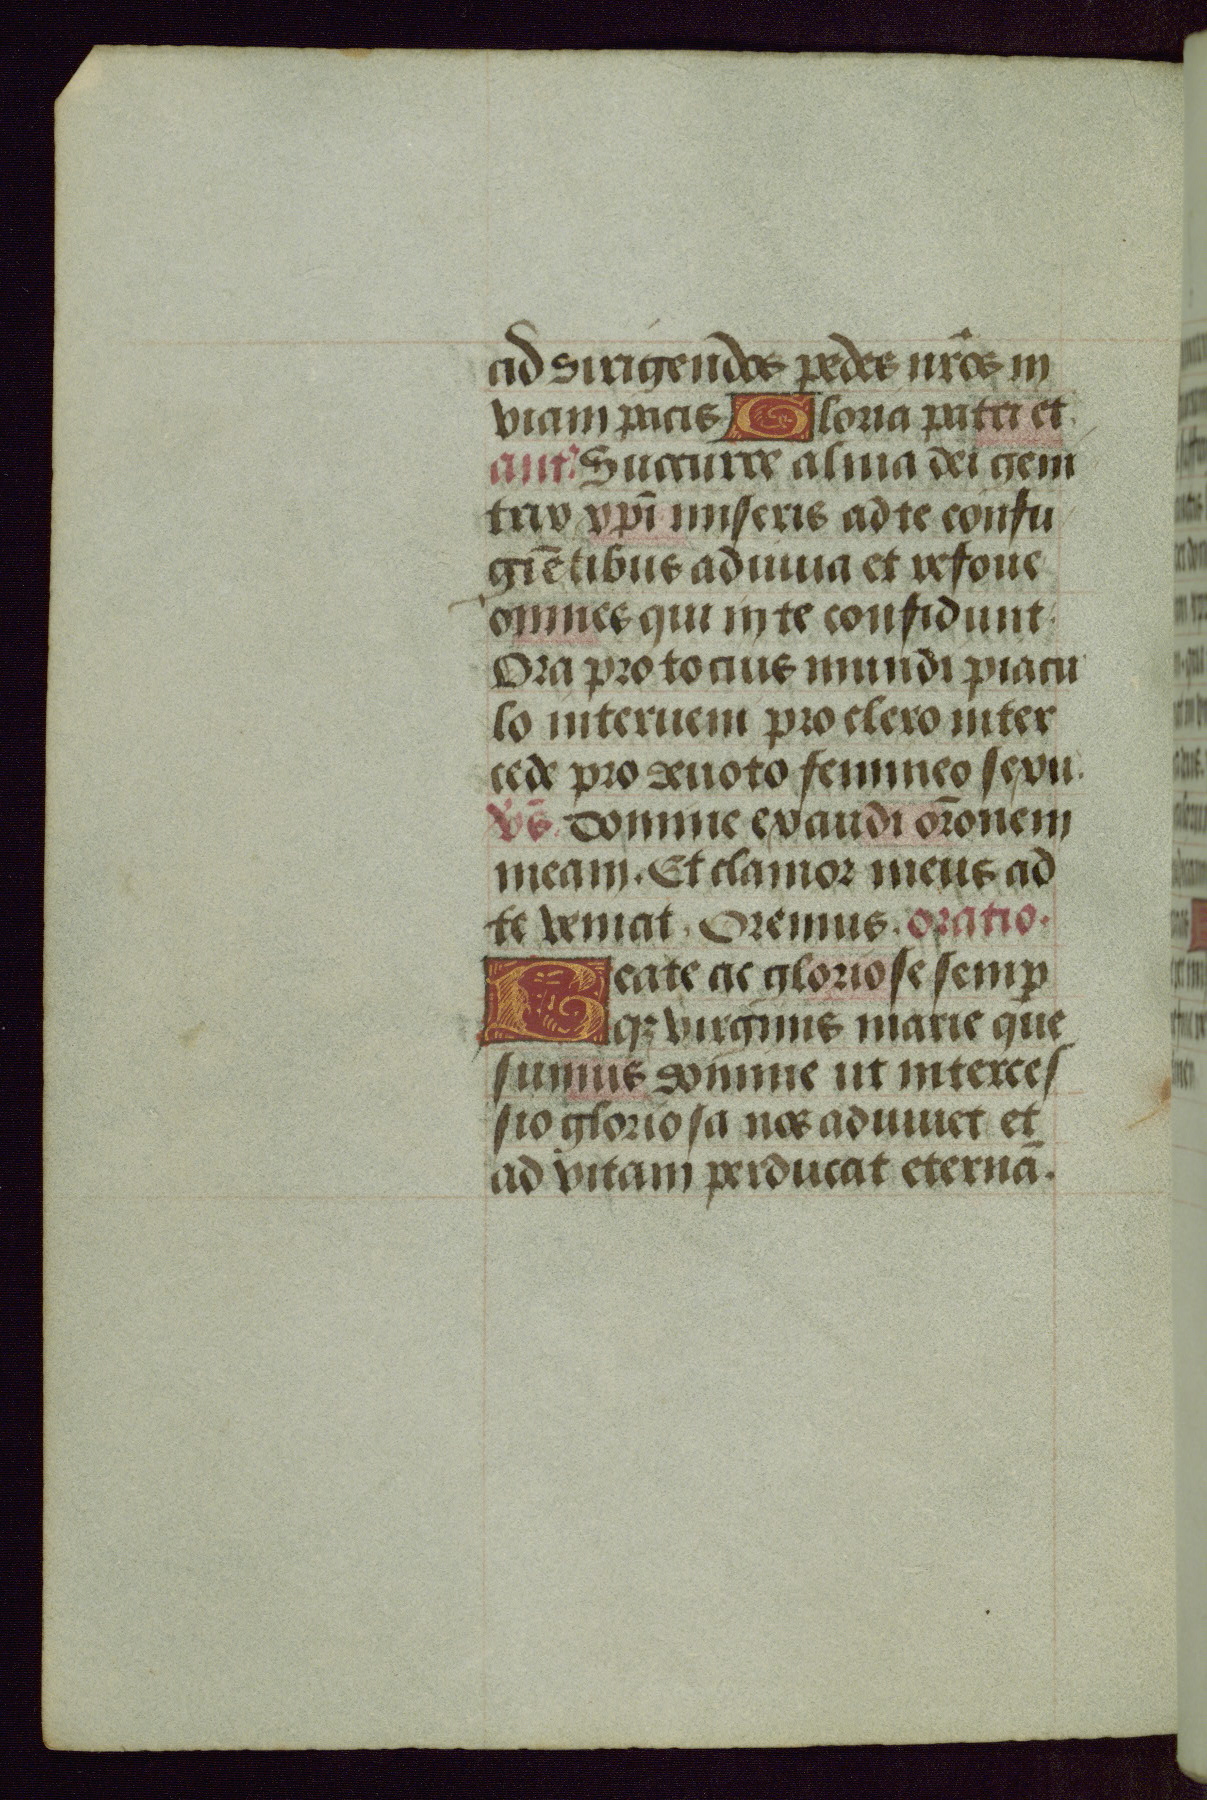 ad dirigendos pedes nr̄os in
viam pacis Gloria patri et.
ant' Succurre alma dei geni
trix xp̄i miseris ad te confu
giētibus adiuua et refoue
omnes qui in te confidunt.
Ora pro tocius mundi piacu
lo interueni pro clero inter
cede pro deuoto femineo sexu.
Vs̄. Domine exaudi or̄onem
meam. Et clamor meus ad
te veniat. Oremus. oratio.
Beate ac gloriose semp
qꝫ virginis marie que
sumus domine ut interces
sio gloriosa nos adiuuet et
ad vitam perducat eternā.